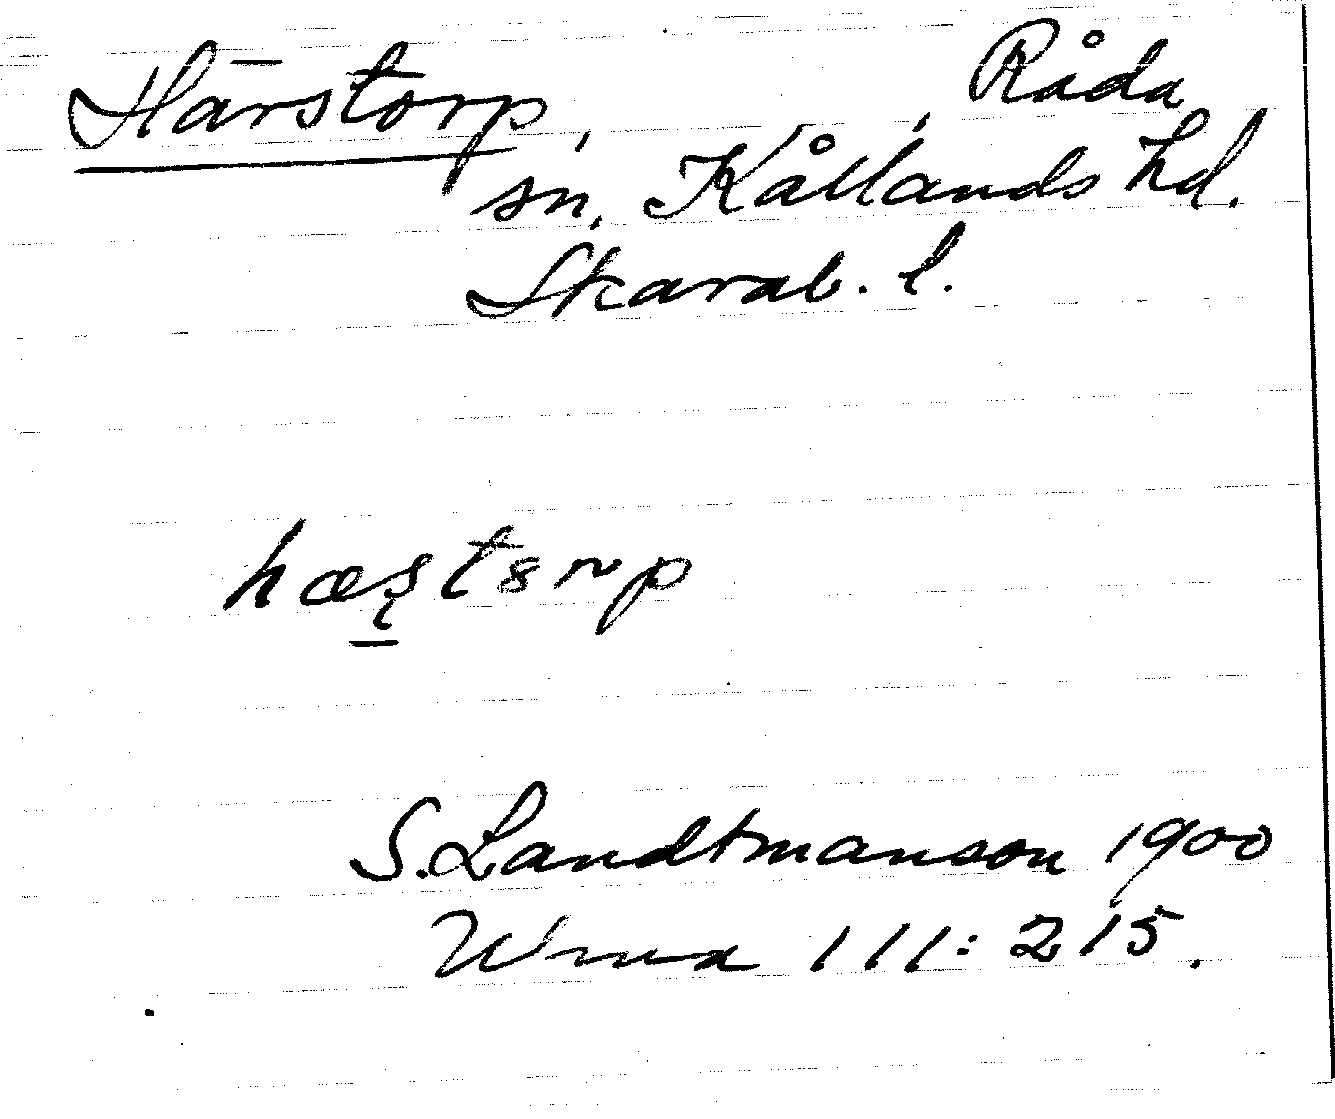 Härstorp, Råda
sn, Kållands hd.
Skarab. l.
hæştsrp
S. Landtmanson 1900
111:215.